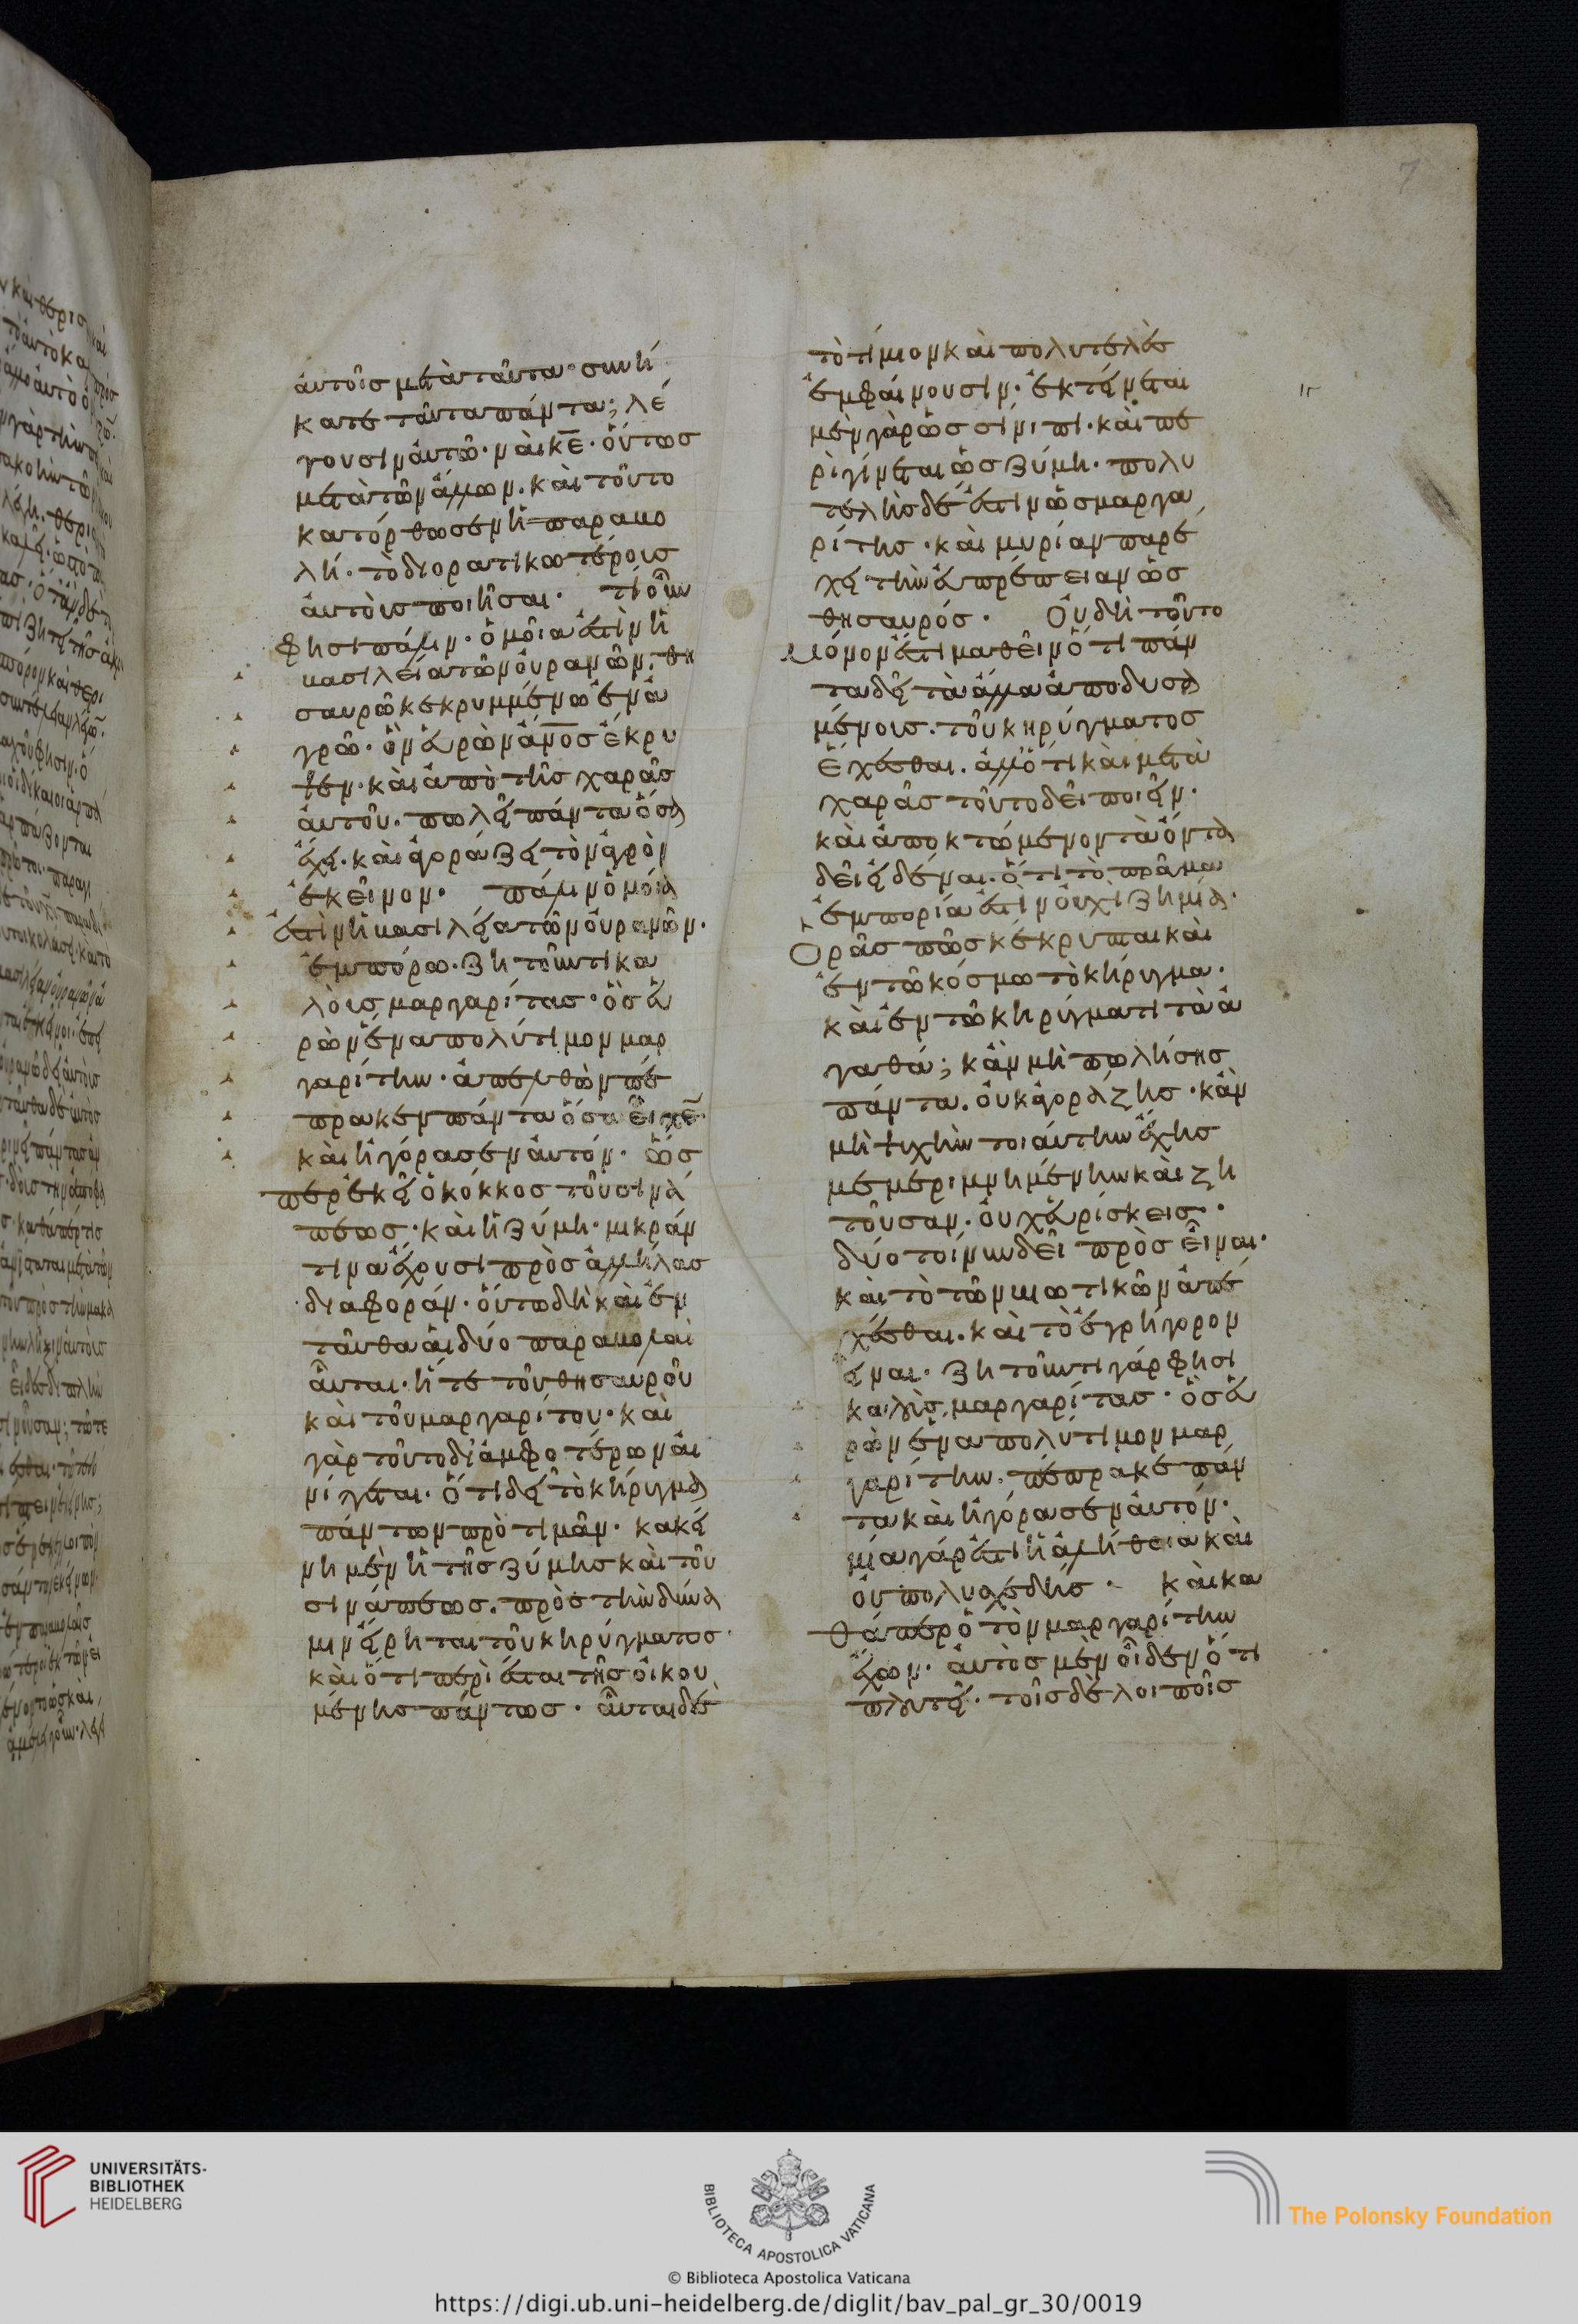 7
αὐτοῖς μετὰ ταῦτα· συνή
κατε ταῦτα πάντα; λέ
γουσιν αὐτῶ· ναὶ κ̅ε̅· οὕτως
μετὰ τῶν ἄλλων. καὶ τοῦτο
κατόρθωσεν ἡ παραβο
λή· τὸ διορατικωτέροις
αὐτοὺς ποιῆσαι· τί οὖν
φησι πάλιν· ὁμοία ἐστὶν ἡ
βασιλεία τῶν οὐρανῶν, θη
σαυρῶ κεκρυμμένω ἐν ἀ
γρῶ· ὃν εὑρὼν α̅ν̅ο̅ς ἔκρυ
ψεν· καὶ ἀπὸ τῆς χαρᾶς
αὐτοῦ. πωλεῖ πάντα ὅσα
ἔχει. καὶ ἀγοράζει τὸν ἀγρὸν
ἐκεῖνον· πάλιν ὁμοία
ἐστὶν ἡ βασιλεία τῶν οὐρανῶν·
ἐμπόρω. ζητοῦντι κα
λοὺς μαργαρίτας· ὃς εὑ
ρὼν ἕνα πολύτιμον μαρ
γαρίτην. ἀπελθὼν πέ
πρακεν πάντα ὅσα εἶχε̅·
καὶ ἠγόρασεν αὐτόν· ὥσ
περ ἐκεῖ ὁ κόκκος τοῦ σινά
πεως· καὶ ἡ ζύμη· μικράν
τινα ἔχουσι πρὸς ἀλλήλας
διαφοράν· οὕτω δὴ καὶ ἐν
ταῦθα αἱ δύο παραβολαὶ
αὗται· ἥ τε τοῦ θησαυροῦ
καὶ τοῦ μαργαρίτου· καὶ
γὰρ τοῦτο δι' ἀμφοτέρων αἰ
νίγεται. ὅτι δεῖ τὸ κήρυγμα
πάντων προτιμᾶν· κακεί
νη μὲν ἡ τῆς ζύμης καὶ τοῦ
σινάπεως. πρὸς τὴν δύνα
μιν εἴρηται τοῦ κηρύγματος·
καὶ ὅτι περιέσται τῆς οἰκου
μένης πάντως· αὗται δὲ
τὸ τίμιον καὶ πολυτελὲς
ἐμφαίνουσιν· ἐκτείνεται
μὲν γὰρ ὡς σίνιπι· καὶ πε
ριγίνεται ὡς ζύμη· πολυ
τελὴς δέ ἐστιν ὡς μαργα
ρίτης· καὶ μυρίαν παρέ
χει τὴν εὐπρέπειαν ὡς
θησαυρός· Οὐ δὴ τοῦτο
μόνον ἐστι μαθεῖν ὅτι πάν
τα δεῖ τὰ ἄλλα ἀποδυσα
μένοις. τοῦ κηρύγματος
ἔχεσθαι. ἀλλ' ὅτι καὶ μετὰ
χαρᾶς τοῦτο δεῖ ποιεῖν·
καὶ ἀποκτώμενον τὰ ὄντα
δεῖ εἰδέναι. ὅτι τὸ πρᾶγμα
ἐμπορία ἐστὶν οὐχὶ ζημία·
Ὁρᾶς πῶς κέκρυπται καὶ
ἐν τῶ κόσμω τὸ κήρυγμα·
καὶ ἐν τῶ κηρύγματι τὰ ἀ
γαθά; κἂν μὴ πωλήσης
πάντα. οὐκ ἀγοράζης· κἂν
μὴ ψυχὴν τοιαύτην ἔχης
μεμεριμνημένην καὶ ζη
τοῦσαν. οὐχ εὑρίσκεις·
δύο τοίνυν δεῖ πρὸς εἶναι·
καὶ τὸ τῶν βιωτικῶν ἀπέ
χεσθαι. καὶ τὸ ἐγρήγορον
εἶναι· ζητοῦντι γάρ φησι
καλοὺς μαργαρίτας· ὃς εὑ
ρὼν ἕνα πολύτιμον μαρ
γαρίτην. πέπρακε πάν
τα καὶ ἠγόρασεν αὐτόν·
μία γάρ ἐστι ἡ ἀλήθεια καὶ
οὐ πολυσχεδής· καὶ κα
θάπερ ὁ τὸν μαργαρίτην
ἔχων· αὐτὸς μὲν οἶδεν ὅτι
πλουτεῖ· τοῖς δὲ λοιποῖς
UNIVERSITÄTS-
BIBLIOTHEK
HEIDELBERG
BIBLIOTECA APOSTOLICA VATICANA
The Polonsky Foundation
© Biblioteca Apostolica Vaticana
https://digi.ub.uni-heidelberg.de/diglit/bav_pal_gr_30/0019